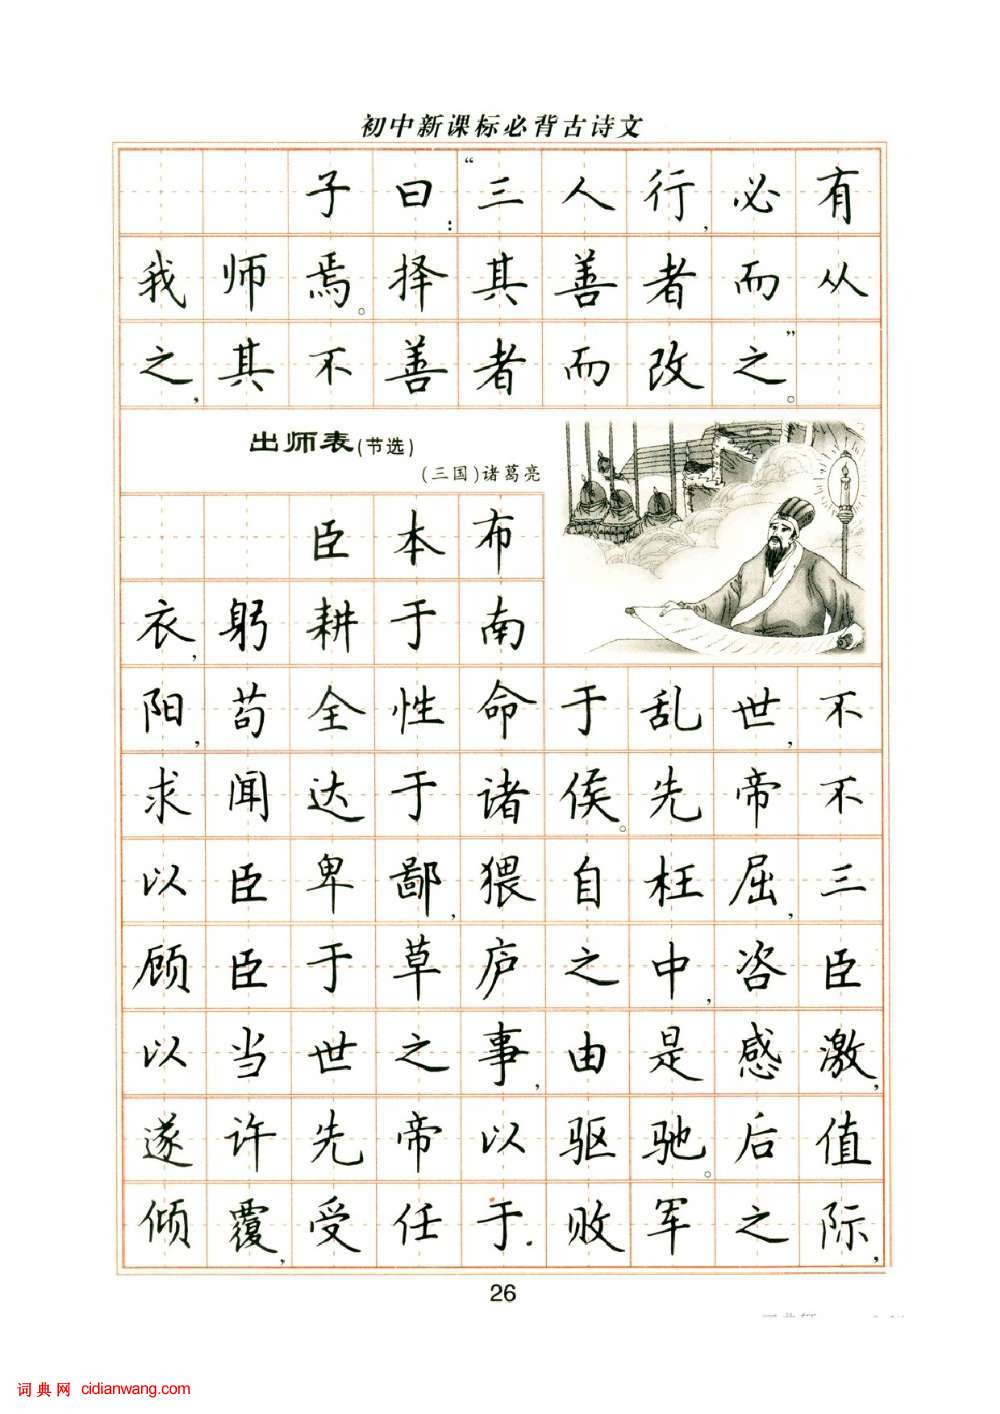 初中新课标必背古诗文
子曰：“三人行，必有
我师焉。择其善者而从
之，其不善者而改之。”
出师表(节选)
(三国)诸葛亮
臣本布
衣，躬耕于南
阳，苟全性命于乱世，不
求闻达于诸侯。先帝不
以臣卑鄙，猥自枉屈，三
顾臣于草庐之中，咨臣
以当世之事，由是感激，
遂许先帝以驱驰。后值
倾覆，受任于败军之际，
26
词典网 cidianwang.com